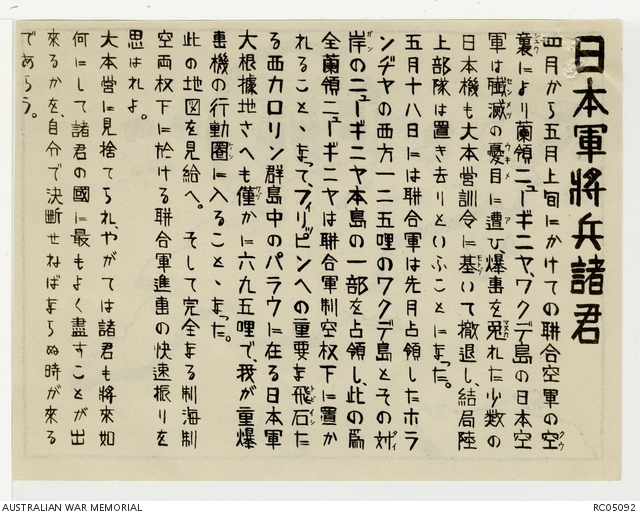 日本軍將兵諸君
四月から五月上旬にかけての聯合空軍の空
襲により蘭領ニューギニヤ、ワクデ島の日本空
軍は殲滅の憂目に遭ひ、爆撃を免れた少数の
日本機も大本営訓令に基いて撤退し、結局陸
上部隊は置き去りといふことになった。
五月十八日には聯合軍は先月占領したホラ
ンヂヤの西方一二五哩のワクデ島とその対
岸のニューギニヤ本島の一部を占領し、此の爲
全蘭領ニューギニヤは聯合軍制空权下に置か
れることゝなって、フィリピンへの重要な飛石た
る西カロリン群島中のパラウに在る日本軍
大根據地さへも僅かに六九五哩で、我が重爆
撃機の行動圏に入ることゝなった。
此の地図を見給へ。そして完全なる制海制
空両权下に於ける聯合軍進撃の快速振りを
思はれよ。
大本営に見捨てられ、やがては諸君も將來如
何にして諸君の國に最もよく盡すことが出
來るかを、自分で決断せねばならぬ時が來る
であらう。
AUSTRALIAN WAR MEMORIAL
RC05092